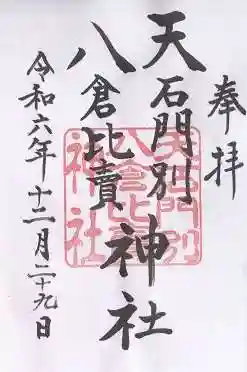 奉拝
天石門別
八倉比賣
神社
令和六年十二月二十九日
天石門別
八倉比賣
神社